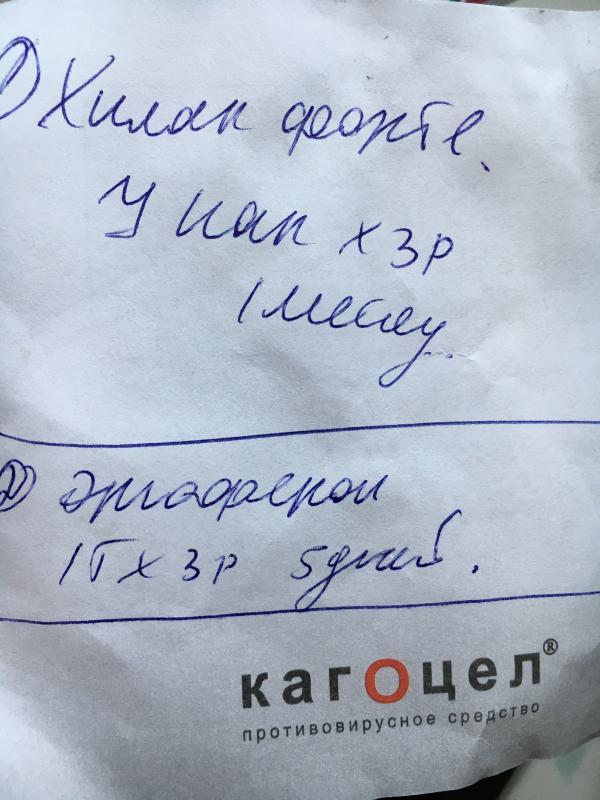 1) Хилак форте.
У кап х 3 р
1 месяц.
2) эргоферон
1т х 3 р 5 дней.
кагоцел®
противовирусное средство